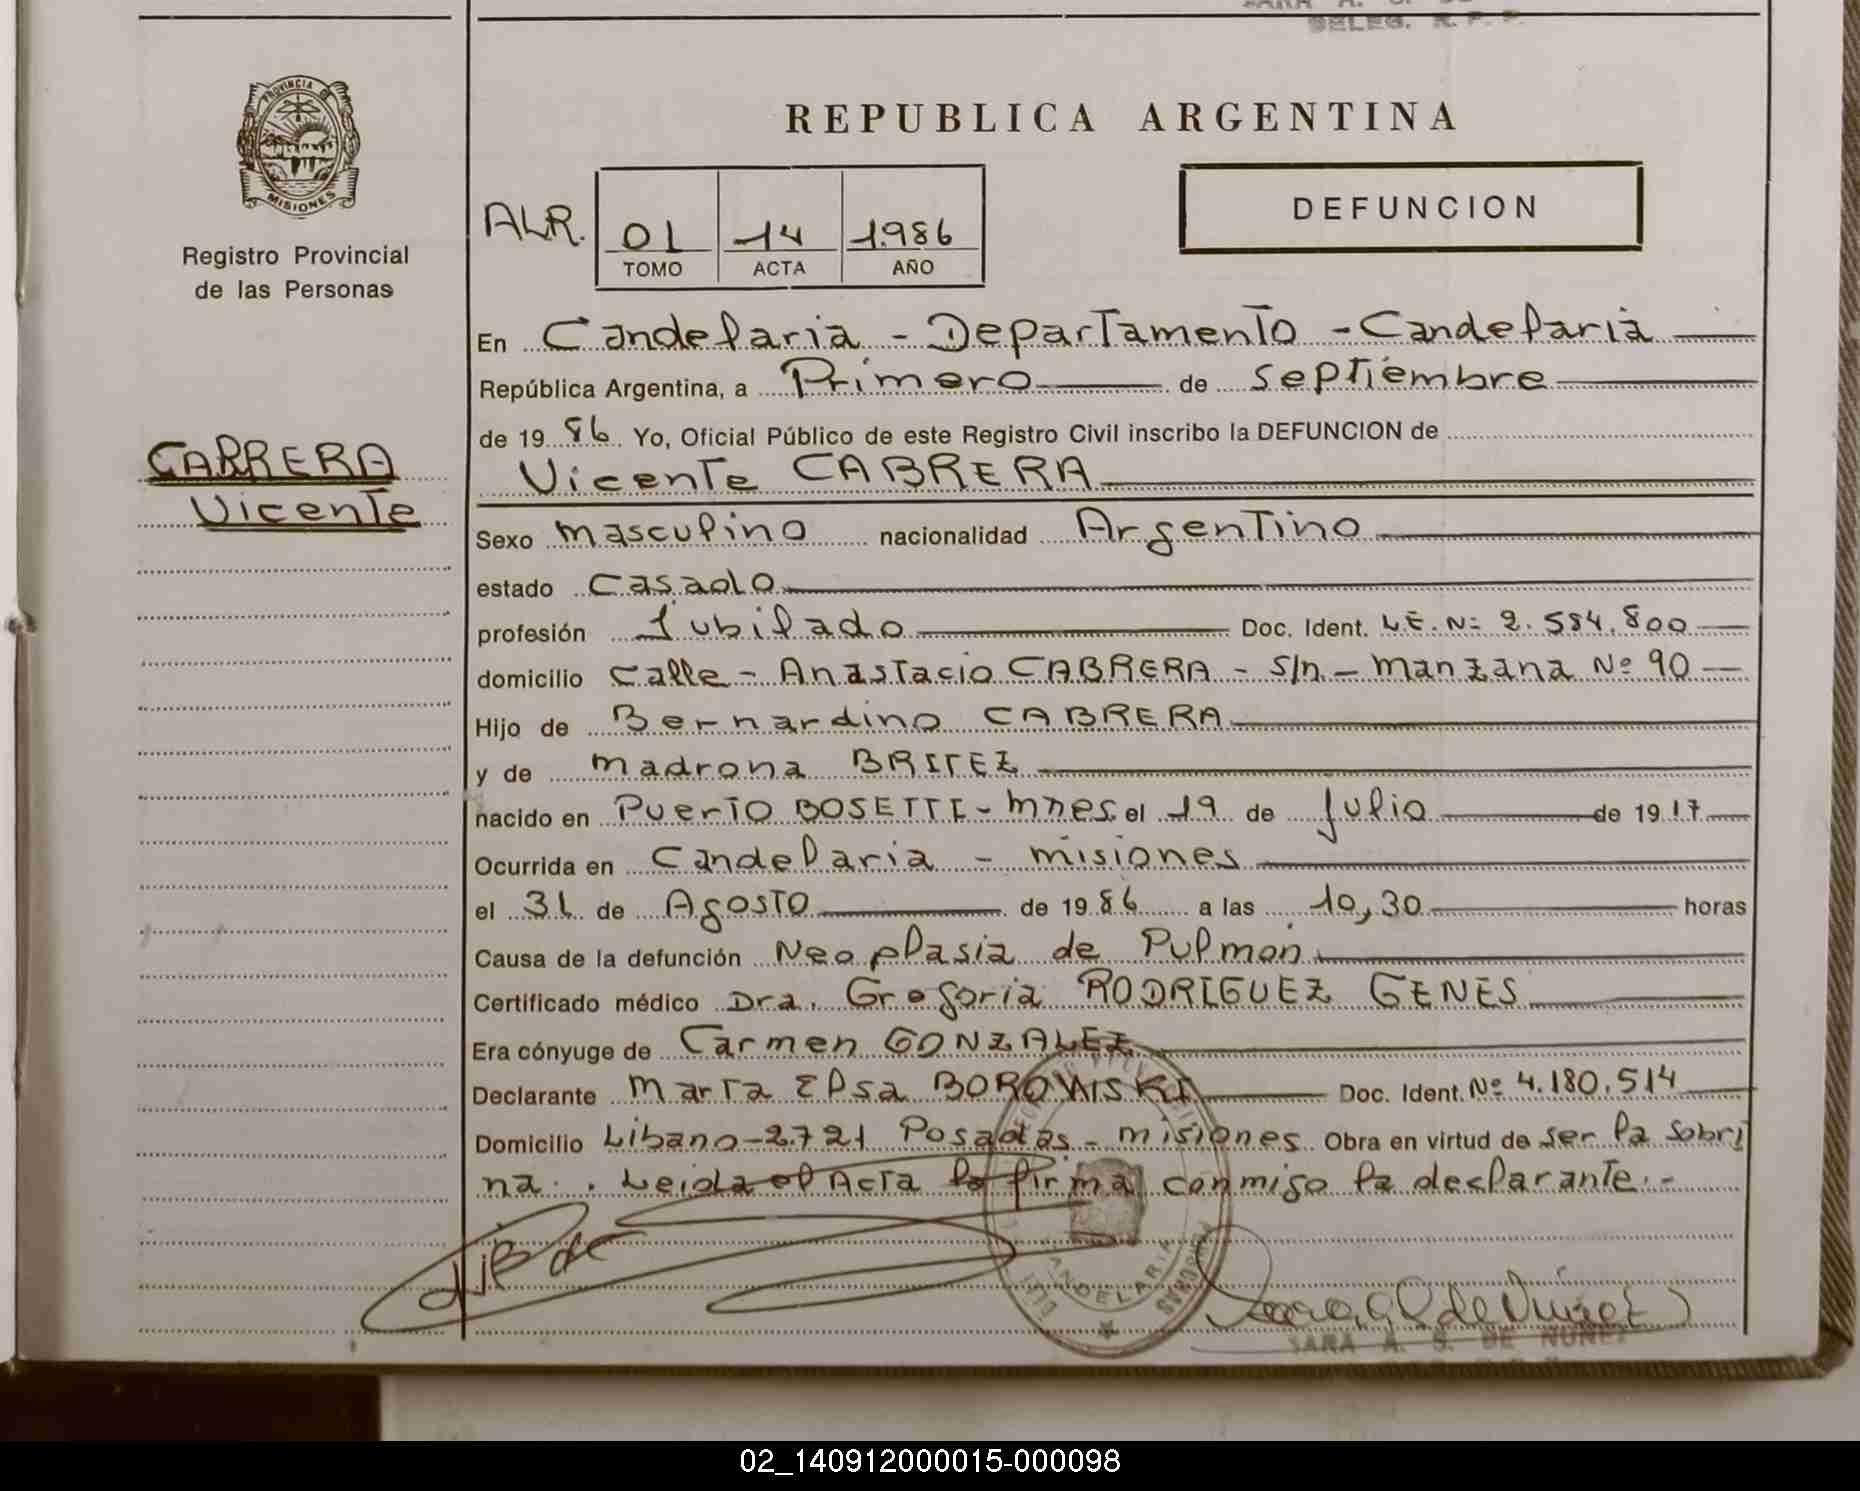 DELEG. R. P. P.
PROVINCIA DE
MISIONES
Registro Provincial
de las Personas
CABRERA
Vicente
REPUBLICA ARGENTINA
ALR. 01 14 1.986
TOMO ACTA AÑO
DEFUNCION
En Candelaria - Departamento - Candelaria
República Argentina, a Primero de septiembre
de 19 86 Yo, Oficial Público de este Registro Civil inscribo la DEFUNCION de
Vicente CABRERA
Sexo masculino nacionalidad Argentino
estado Casado
profesión Jubilado Doc. Ident. L.E. Nº 2.584.800
domicilio Calle - Anastacio CABRERA - s/n. - manzana Nº 90
Hijo de Bernardino CABRERA
y de madrona BRITEZ
nacido en Puerto BOSETTI - Mnes. el 19 de Julio de 19 17
Ocurrida en Candelaria - misiones
el 31 de Agosto de 19 86 a las 10,30 horas
Causa de la defunción Neoplasia de Pulmon
Certificado médico Dra. Gregoria RODRIGUEZ GENES
Era cónyuge de Carmen GONZALEZ
Declarante Marta Elsa BOROWISKI Doc. Ident. Nº 4.180.514
Domicilio Libano - 2.721 Posadas - misiones Obra en virtud de ser la sobri
na . Leida el Acta la firma conmigo la declarante. -
CANDELARIA
SARA A. S. DE NUÑEZ
02_140912000015-000098